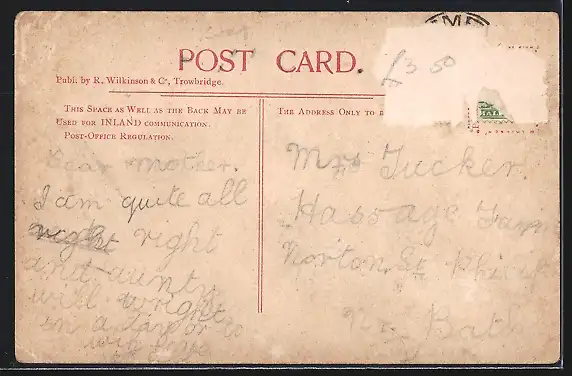 POST CARD.
Publ. by R. Wilkinson & Co, Trowbridge.
THIS SPACE AS WELL AS THE BACK MAY BE
USED FOR INLAND COMMUNICATION.
POST-OFFICE REGULATION.
THE ADDRESS ONLY TO
£3 50
Dear Mother.
I am quite all
right right
and aunty
will wright
in a day or so
with love
Mrs Tucker.
Hassage Farm
Norton St Philip
Nr Bath